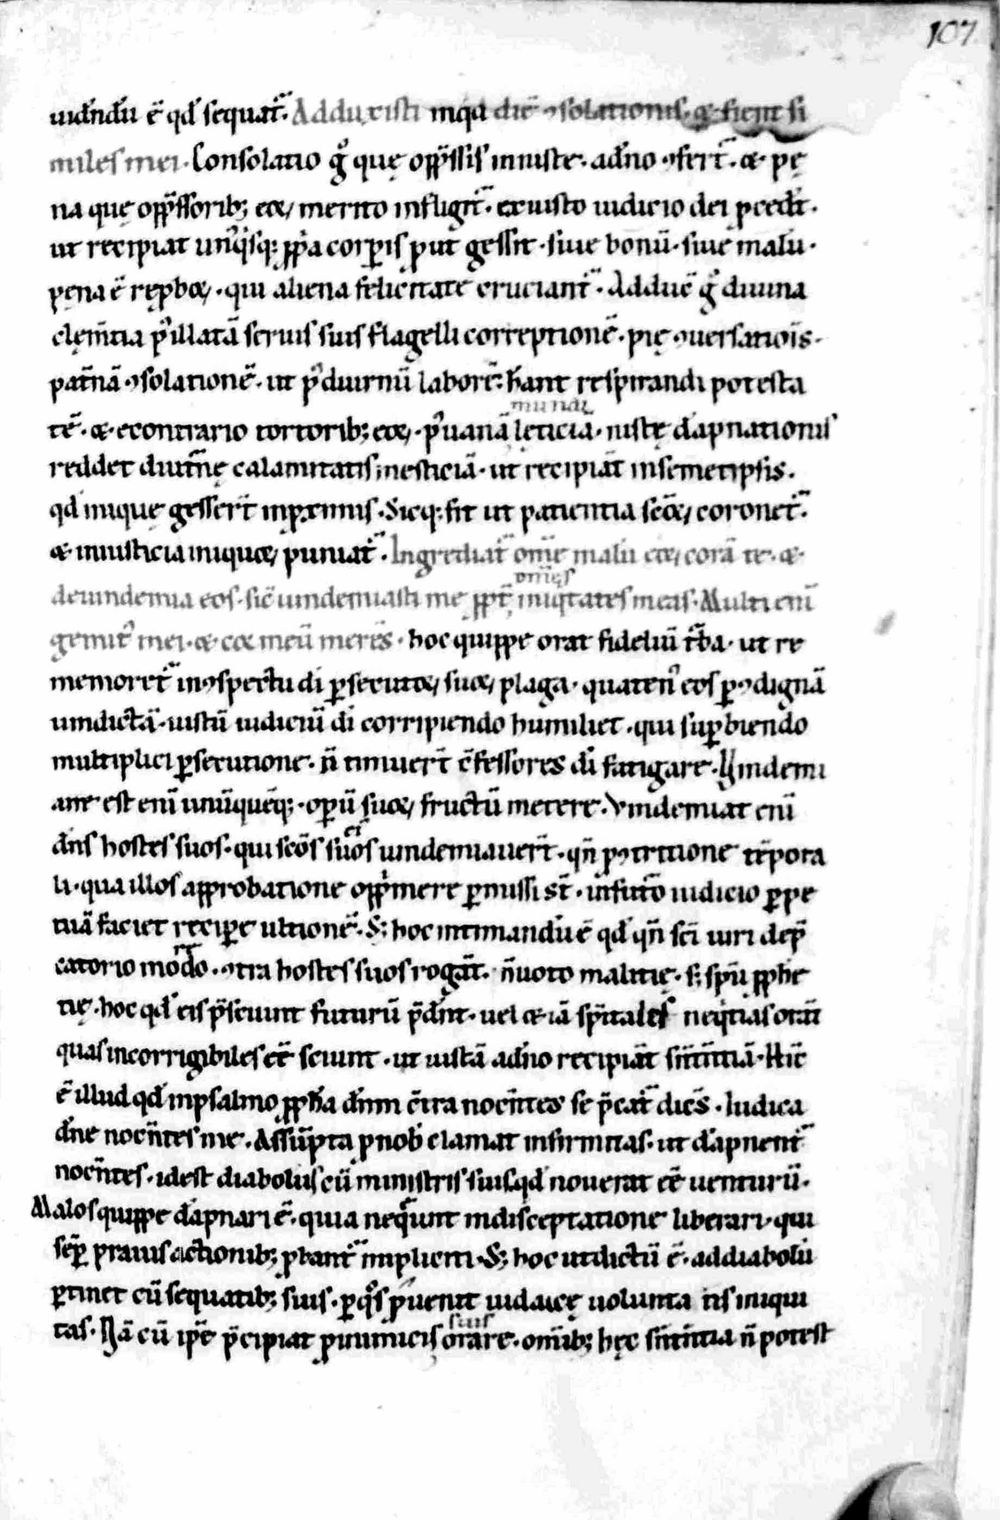 107
uidndu ē qđ sequat̄. Adduxisti inqđ diē ɔsolationis. & fient si
miles mei. Consolatio gͦ quę opp̄ssis iniuste. a dn̄o ɔfert̄. & pę
na quę opp̄ssorib; eoꝝ merito infligit̄. ex iusto iudicio dei ꝓcedit.
ut recipiat unꝰqisq; ꝓpa corꝑis ꝓut gessit. siue bonū. siue malū.
pęna ē rep̱boꝝ. qui aliena felicitate cruciant̄. Adducē gͦ diuina
clęm̄tia p̾ illatā seruis suis flagelli correptionē. pię ɔuersatiōis.
pat̄nā ɔsolationē. ut p̾ diuirnū laborē. hēant respirandi potesta
mundi
tē. & econtrario tortorib; eoꝝ. p̾ uanā lęticia. iustę dāpnationis
reddet diut̄nę calamitatis mesticiā. ut recipiāt in semetipsis.
qđ inique gesser̄t in ꝓximis. Sicq; fit ut patientia scōꝝ coronet̄.
& iniusticia iniquoꝝ puniat̄. Ingrediat̄ om̄e malū eoꝝ corā te. &
om̄ęs
deuindemia eos. sic̄ uindemiasti me ꝓpt̄ iniqtates meas. Multi eni
gemitꝰ mei. & cor meū merēs. hoc quippe orat fideliū t̄ba. ut re
memoret̄ in ɔspectu di ꝑsecutoꝝ suoꝝ plaga. quatenꝰ eos ꝑ ɔdignā
uindictā. iustū iudiciū di corripiendo humiliet. qui suꝑbiendo
multiplici ꝑsecutione. n̄ timuer̄t c̄fessores di fatigare. Vindemi
are est eni unūquēq; oꝑū suoꝝ fructū metere. Vindemiat eni
ei
dn̄s hostes suos. qui scōs suos uindemiauer̄t. qn̄ ꝓ ɔtritione tēpora
li. qua illos app̱robatione opp̄mere ꝑmissi st̄. in futo iudicio ꝑpe
tuā faciet reciꝑe ultionē. S; hoc intimandū ē qđ qn̄ sc̄i uiri dep̄
catorio modo. ɔtra hostes suos rogāt. n̄ uoto malitię. s; spū ꝓphe
tię. hoc qđ eis p̄sciunt futurū p̄dn̄t. uel & iā sp̄itales neqtias orant
quas incorrigibiles eē sciunt. ut iustā a dn̄o recipiāt sn̄tn̄tiā. Hic
ē illud qđ in psalmo ꝓph̄a dn̄m c̄tra noc̄ntes se p̄cat̄ dic̄s. Iudica
dn̄e noc̄ntes me. Assūpta ꝓ nob̄ clamat infirmitas. ut dāpnent̄
noc̄ntes. idest diabolus cū ministris suis. qđ nouerat eē uenturū.
Malos quippe dāpnari ē. quia neqͣunt in disceptatione liberari. qui
sēꝑ prauis actionib; ꝓbant̄ impliciti. S; hoc ut dictū ē. ad diabolū
ꝑtinet cū sequatib; suis. ꝑ qͦs ꝓuenit iudaicę uoluntatis iniqui
suis
tas. Nā cū ip̄e p̄cipiat ꝓ inimicis orare. omib; hęc sn̄tn̄tia n̄ potest